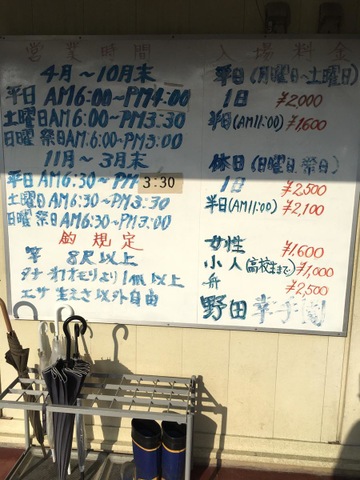 営業時間
4月～10月末
平日 AM6:00～PM4:00
土曜日AM6:00～PM3:30
日曜 祭日AM6:00～PM3:00
11月～3月末
平日 AM6:30～PM3:30
土曜日AM6:30～PM3:30
日曜 祭日AM6:30～PM3:00
釣規定
竿 8尺以上
タナ オカオモリより1m以上
エサ 生えさ以外自由
入場料金
平日(月曜日～土曜日)
1日 ¥2000
半日(AM11:00) ¥1600
休日(日曜日、祭日)
1日 ¥2,500
半日(AM11:00) ¥2,100
女性 ¥1,600
小人(高校生まで) ¥1,000
舟 ¥2,500
野田幸手園